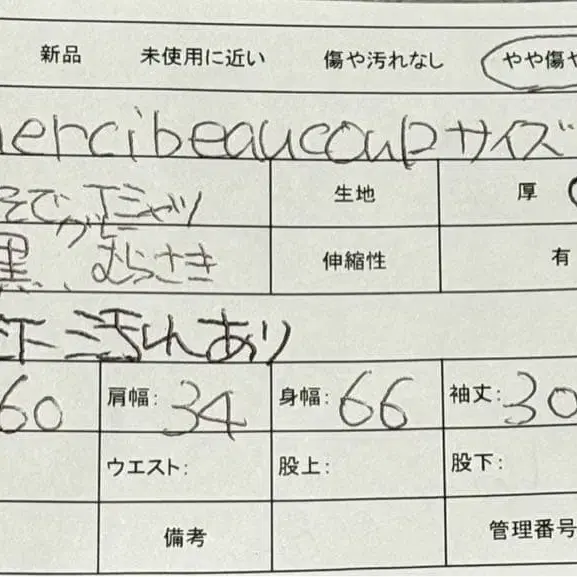 新品 未使用に近い 傷や汚れなし やや傷や
mercibeaucoup サイズ
そで Tシャツ 生地 厚
がら
黒、むらさき 伸縮性 有
汚れあり
60 肩幅: 34 身幅: 66 袖丈: 30
ウエスト: 股上: 股下:
備考 管理番号